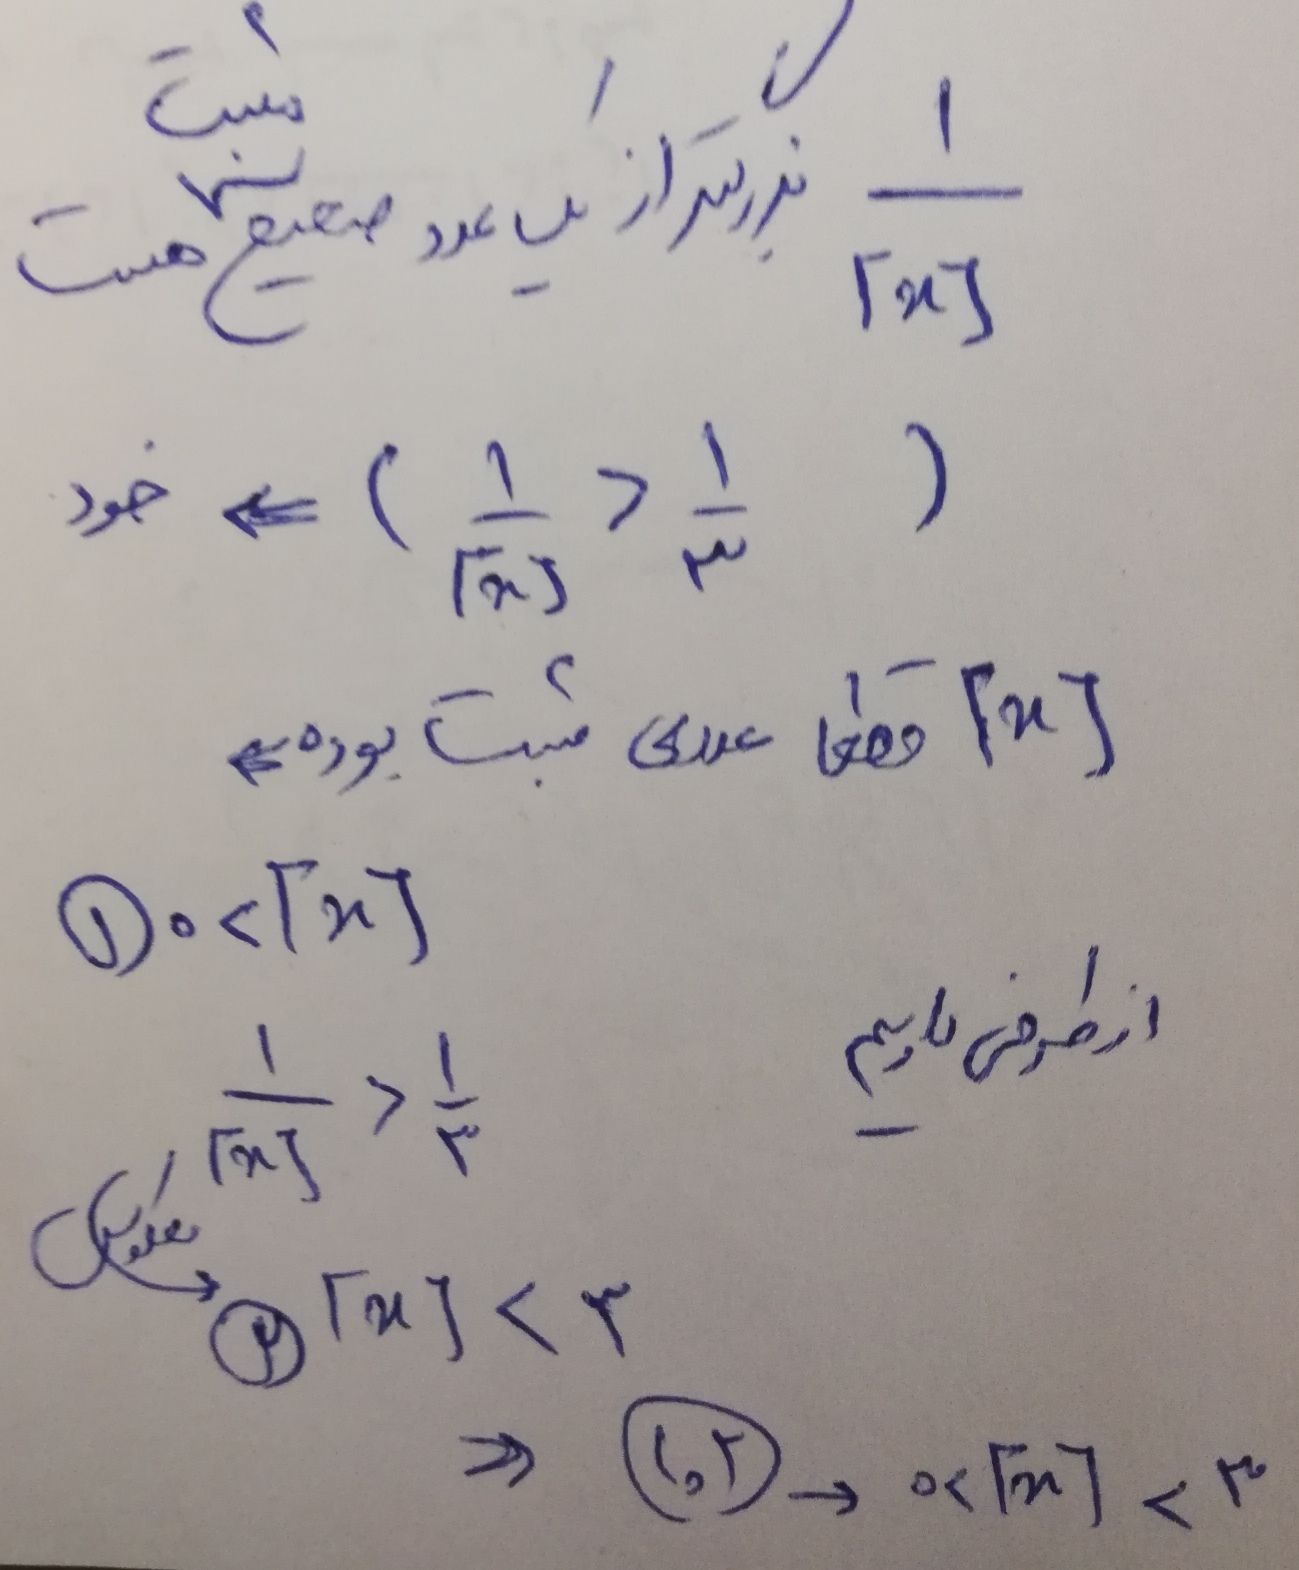 ۱/[x] بزرگتر از یک عدد صحیح مثبت هست
( ۱/[x] > ۱/۳ ) ⇐ خود
[x] قطعا عددی مثبت بوده ⇐
① ۰<[x]
از طرفی داریم
۱/[x] > ۱/۳
② [x] < ۳
⇒ ۱،۲ → ۰<[x] < ۳